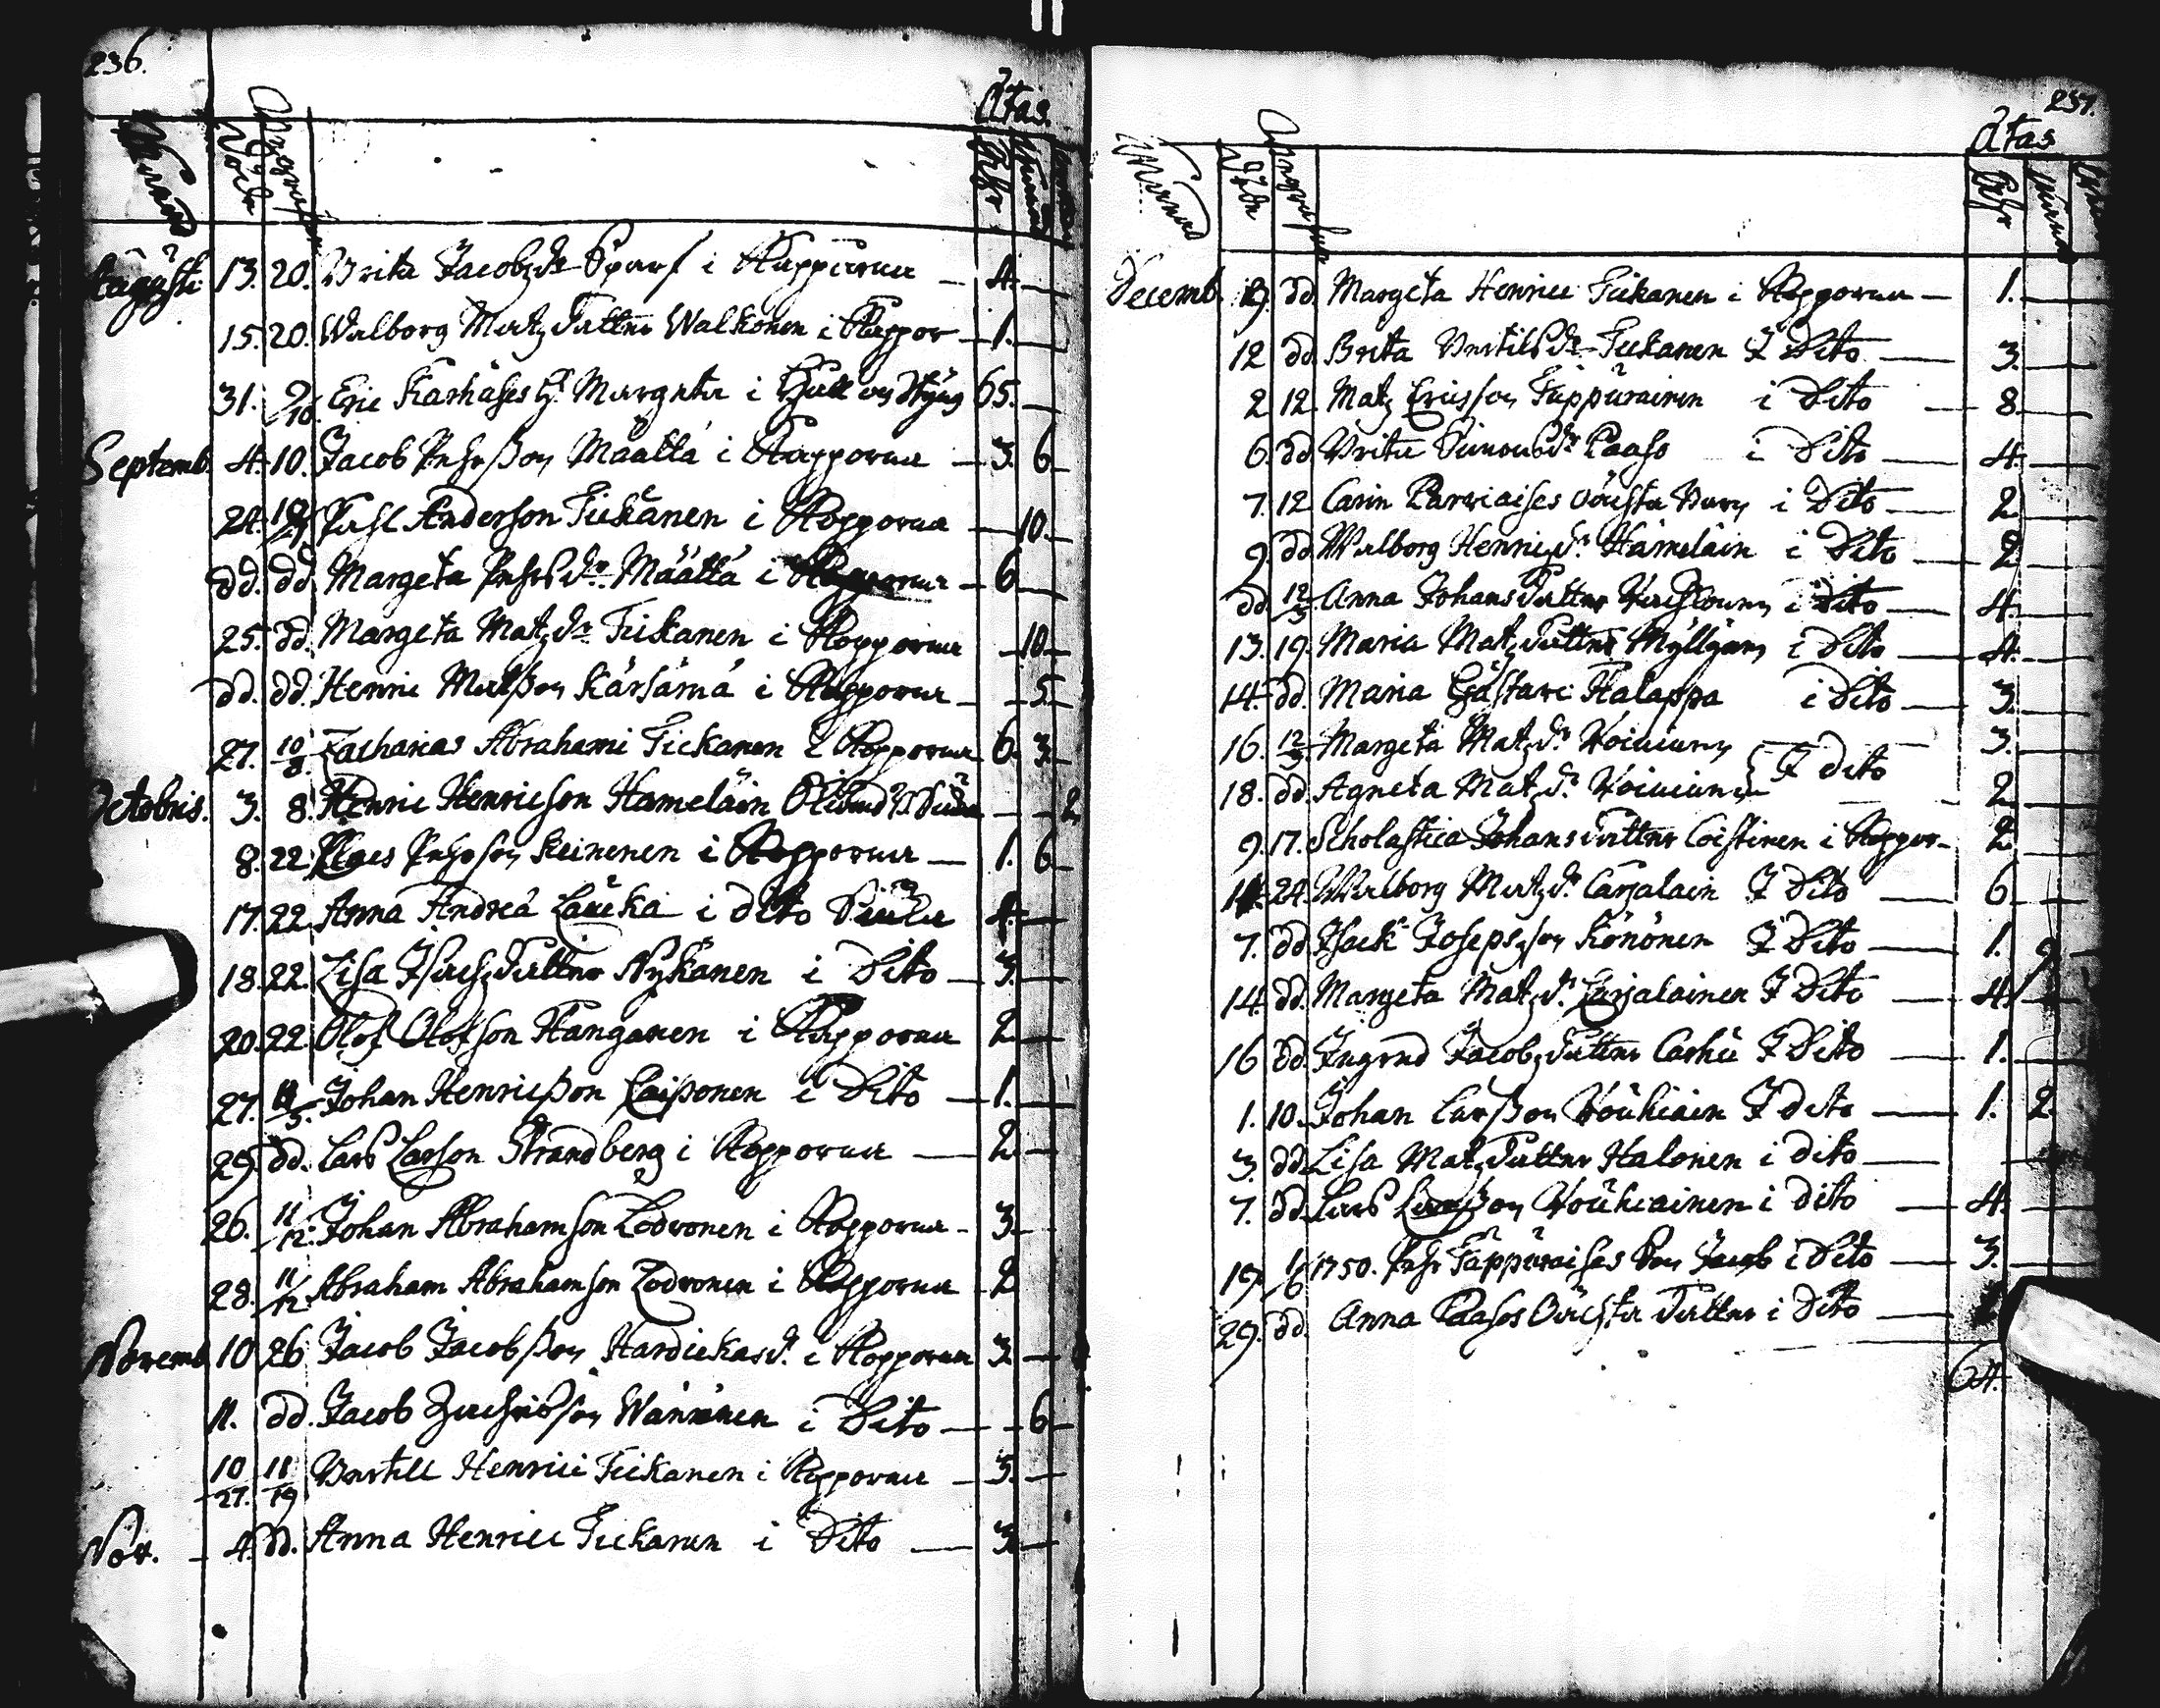 236.
Ætas.
Månad Död Begrafven Åhr Månad
Augusti 13. 20. Brita Jacobsdr Sparf i Kopporna — 4.
15. 20. Walborg Matz dotter Walkonen i Koppor — 1.
31. 9/10. Eric Karhases H. Margeta i 65.
Septemb. 4. 10. Jacob Pehrsson Määttä i Kopporna — 3. 6
24. Påhl Anderson Tickanen i Kopporna — 10.
dd. dd. Margeta Pehrsdr Määttä i Kopporna — 6
25. dd. Margeta Matzdr Tickanen i Kopporna — 10
dd. dd. Henric Matsson Kärsämä i Kopporna — 5.
27. 10/8. Zacharias Abrahami Tickanen i Kopporna 6. 3.
Octobris. 3. 8. Henric Henricson Hameläin 2
8. 22 Claes Pehrson Keinenen i Kopporna — 1. 6
17. 22. Anna Andreä Laucka i dito 4.
18. 22. Lisa Isacs dotter Nykänen i Dito — 3.
20. 22. Olof Olofsson Kanganen i Kopporna 2.
27. 11/5. Johan Henricsson Laisonen i Dito — 1.
29. dd. Lars Larson Strandberg i Kopporna — 2.
26. 11/12. Johan Abrahamson Lodvonen i Kopporna — 3.
28. 11/12. Abraham Abrahamson Lodvonen i Kopporna — 2
Novemb. 10. 26 Jacob Jacobsson Hardickas d. i Kopporna 3.
11. dd. Jacob Wänänen i Dito — 6
10/27. 11/19 Bertill Henrici Tickanen i Kopporna — 3.
Nov. 4. dd. Anna Henrici Tickanen i Dito — 3.
237.
Ætas
Månad Död Begrafven Åhr Månad
Decemb. 9. dd Margeta Henrici Tickanen i Kopporna — 1.
12 dd. Brita Bertilsdr Tickanen I Dito — 3.
2 12. Matz Ericsson Tappurainen i Dito — 8.
6. dd Brita Simonsdr Paaso i Dito — 4.
7. 12 Carin Parviaises oächta Barn i Dito — 2.
9. dd Walborg Henricsdr Hämeläin i Dito — 2
dd. 12/3. Anna Johans dotter i Dito — 4.
13. 19. Maria Matz dotter Myllyäin i Dito — 4.
14. dd. Maria Gustavi Halappa i Dito — 3.
16. 12/3. Margeta Matzdr 3.
18. dd. Agneta Matzdr I dito 2.
9. 17. Scholastica Johans dotter Coistinen i Koppor — 2.
14. 24. Walborg Matzdr Carjalain I Dito — 6
7. dd Isack Josepsson Könönen I Dito — 1. 9
14. dd. Margeta Matzdr Carjalainen I Dito — 4.
16 dd. Ingrid Jacobs dotter Carhu I Dito — 1.
1. 10. Johan Larsson Vouhiain I dito — 1. 2.
3. dd. Lisa Matz dotter Halonen i dito —
7. dd. Lars Larsson Vouhiainen i dito — 4.
19. 1/6 1750. Pehr Tappuraises Son Jacob i Dito — 3.
29. dd. Anna Paasos Oächta Dotter i Dito —
64.